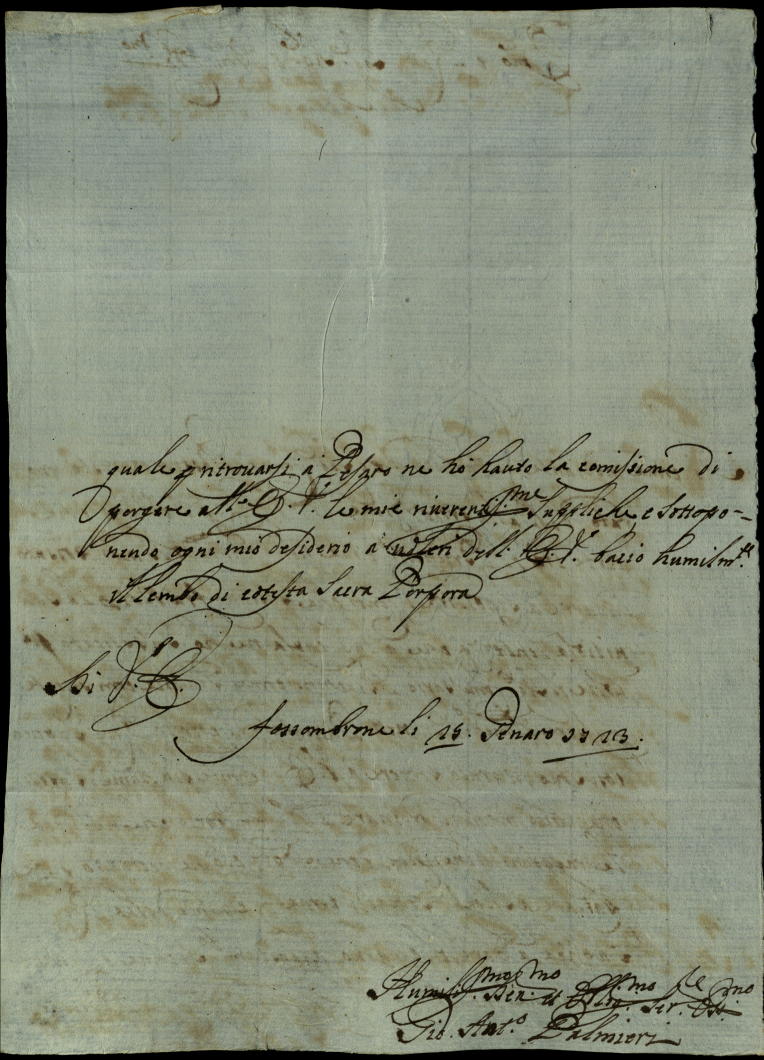 quale p ritrovarsi à Pesaro ne hò hauto la comissione di
porgere all'E. V. le mie riverentis.me Suppliche, e sottopo-
nendo ogni mio desiderio à voleri dell'E. V. bacio humilm.te
il lembo di cotesta sacra Porpora
Di V. E.
Fossombrone li 15. Genaro 1713.
Humilis.mo Dev.mo et Obblig.mo Ser.re Oss.mo
Gio. Ant.o Palmieri